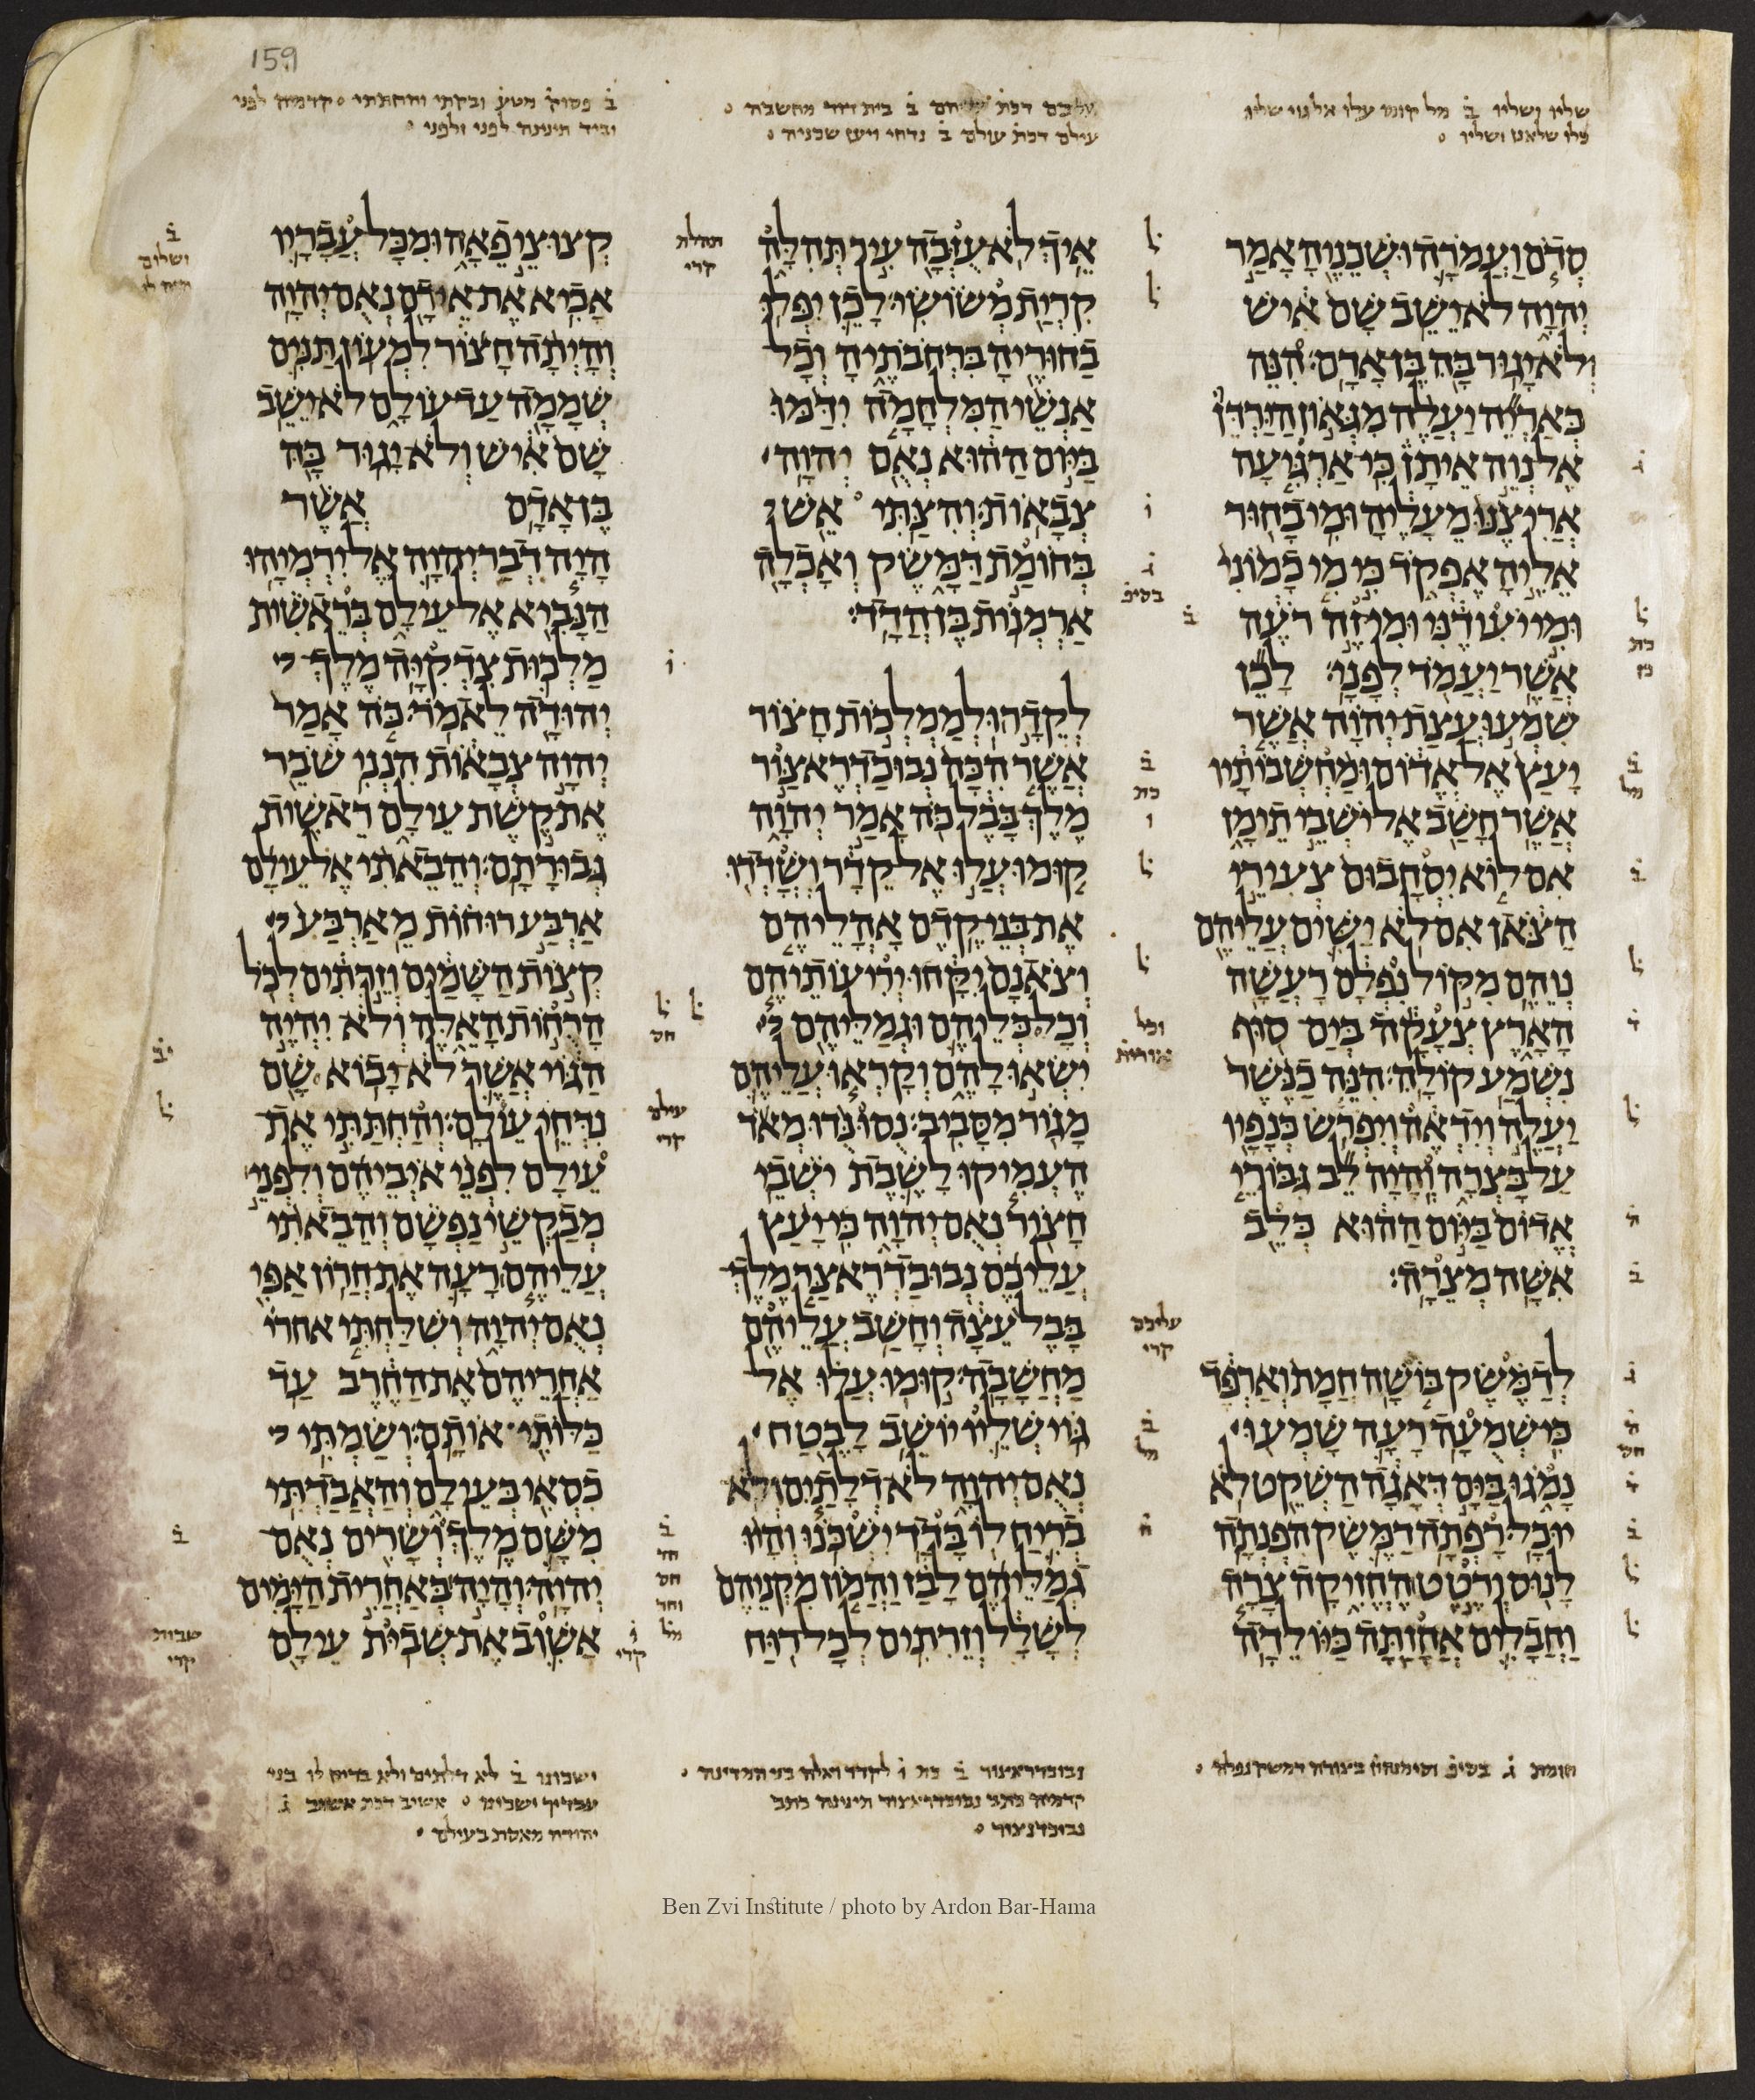 159
שליו ושליו ב מל קומו עלו אל גוי שליו
עילם דכת עולם ב נדחי ויען שכניה
ב פסוק מטע ובקתי והחתתי קדמיה לפני
סְדֹם וַעֲמֹרָה וּשְׁכֵנֶיהָ אָמַר
יְהוָה לֹא יֵשֵׁב שָׁם אִישׁ
וְלֹא יָגוּר בָּהּ בֶּן אָדָם׃ הִנֵּה
כְּאַרְיֵה יַעֲלֶה מִגְּאוֹן הַיַּרְדֵּן
אֶל נְוֵה אֵיתָן כִּי אַרְגִּיעָה
אֲרִיצֶנּוּ מֵעָלֶיהָ וּמִי בָחוּר
אֵלֶיהָ אֶפְקֹד כִּי מִי כָמוֹנִי
וּמִי יוֹעִדֶנִּי וּמִי זֶה רֹעֶה
אֲשֶׁר יַעֲמֹד לְפָנָי׃ לָכֵן
שִׁמְעוּ עֲצַת יְהוָה אֲשֶׁר
יָעַץ אֶל אֱדוֹם וּמַחְשְׁבוֹתָיו
אֲשֶׁר חָשַׁב אֶל יֹשְׁבֵי תֵימָן
אִם לוֹא יִסְחָבוּם צְעִירֵי
הַצֹּאן אִם לֹא יַשִּׁים עֲלֵיהֶם
נְוֵהֶם׃ מִקּוֹל נִפְלָם רָעֲשָׁה
הָאָרֶץ צְעָקָה בְּיַם סוּף
נִשְׁמַע קוֹלָהּ׃ הִנֵּה כַנֶּשֶׁר
יַעֲלֶה וְיִדְאֶה וְיִפְרֹשׂ כְּנָפָיו
עַל בָּצְרָה וְהָיָה לֵב גִּבּוֹרֵי
אֱדוֹם בַּיּוֹם הַהוּא כְּלֵב
אִשָּׁה מְצֵרָה׃
לְדַמֶּשֶׂק בּוֹשָׁה חֲמָת וְאַרְפָּד
כִּי שְׁמֻעָה רָעָה שָׁמְעוּ
נָמֹגוּ בַּיָּם דְּאָגָה הַשְׁקֵט לֹא
יוּכָל׃ רָפְתָה דַמֶּשֶׂק הִפְנְתָה
לָנוּס וְרֶטֶט הֶחֱזִיקָה צָרָה
וַחֲבָלִים אֲחָזַתָּה כַּיּוֹלֵדָה׃
אֵיךְ לֹא עֻזְּבָה עִיר תְּהִלָּה
קִרְיַת מְשׂוֹשִׂי׃ לָכֵן יִפְּלוּ
בַחוּרֶיהָ בִּרְחֹבֹתֶיהָ וְכָל
אַנְשֵׁי הַמִּלְחָמָה יִדַּמּוּ
בַּיּוֹם הַהוּא נְאֻם יְהוָה
צְבָאוֹת׃ וְהִצַּתִּי אֵשׁ
בְּחוֹמַת דַּמָּשֶׂק וְאָכְלָה
אַרְמְנוֹת בֶּן הֲדָד׃
לְקֵדָר וּלְמַמְלְכוֹת חָצוֹר
אֲשֶׁר הִכָּה נְבוּכַדְרֶאצּוֹר
מֶלֶךְ בָּבֶל כֹּה אָמַר יְהוָה
קוּמוּ עֲלוּ אֶל קֵדָר וְשָׁדְדוּ
אֶת בְּנֵי קֶדֶם׃ אָהֳלֵיהֶם
וְצֹאנָם יִקָּחוּ יְרִיעוֹתֵיהֶם
וְכָל כְּלֵיהֶם וּגְמַלֵּיהֶם
יִשְׂאוּ לָהֶם וְקָרְאוּ עֲלֵיהֶם
מָגוֹר מִסָּבִיב׃ נֻסוּ נֻּדוּ מְאֹד
הֶעְמִיקוּ לָשֶׁבֶת יֹשְׁבֵי
חָצוֹר נְאֻם יְהוָה כִּי יָעַץ
עֲלֵיכֶם נְבוּכַדְרֶאצַּר מֶלֶךְ
בָּבֶל עֵצָה וְחָשַׁב עֲלֵיהֶם
מַחֲשָׁבָה׃ קוּמוּ עֲלוּ אֶל
גּוֹי שְׁלֵיו יוֹשֵׁב לָבֶטַח
נְאֻם יְהוָה לֹא דְלָתַיִם וְלֹא
בְרִיחַ לוֹ בָּדָד יִשְׁכֹּנוּ׃ וְהָיוּ
גְמַלֵּיהֶם לָבַז וַהֲמוֹן מִקְנֵיהֶם
לְשָׁלָל וְזֵרִתִים לְכָל רוּחַ
קְצוּצֵי פֵאָה וּמִכָּל עֲבָרָיו
אָבִיא אֶת אֵידָם נְאֻם יְהוָה׃
וְהָיְתָה חָצוֹר לִמְעוֹן תַּנִּים
שְׁמָמָה עַד עוֹלָם לֹא יֵשֵׁב
שָׁם אִישׁ וְלֹא יָגוּר בָּהּ
בֶּן אָדָם׃ אֲשֶׁר
הָיָה דְבַר יְהוָה אֶל יִרְמְיָהוּ
הַנָּבִיא אֶל עֵילָם בְּרֵאשִׁית
מַלְכוּת צִדְקִיָּה מֶלֶךְ
יְהוּדָה לֵאמֹר׃ כֹּה אָמַר
יְהוָה צְבָאוֹת הִנְנִי שֹׁבֵר
אֶת קֶשֶׁת עֵילָם רֵאשִׁית
גְּבוּרָתָם׃ וְהֵבֵאתִי אֶל עֵילָם
אַרְבַּע רוּחוֹת מֵאַרְבַּע
קְצוֹת הַשָּׁמַיִם וְזֵרִתִים לְכֹל
הָרֻחוֹת הָאֵלֶּה וְלֹא יִהְיֶה
הַגּוֹי אֲשֶׁר לֹא יָבוֹא שָׁם
נִדְּחֵי עוֹלָם׃ וְהַחְתַּתִּי אֶת
עֵילָם לִפְנֵי אֹיְבֵיהֶם וְלִפְנֵי
מְבַקְשֵׁי נַפְשָׁם וְהֵבֵאתִי
עֲלֵיהֶם רָעָה אֶת חֲרוֹן אַפִּי
נְאֻם יְהוָה וְשִׁלַּחְתִּי אחרי
אַחֲרֵיהֶם אֶת הַחֶרֶב עַד
כַּלּוֹתִי אוֹתָם׃ וְשַׂמְתִּי
כִסְאִי בְּעֵילָם וְהַאֲבַדְתִּי
מִשָּׁם מֶלֶךְ וְשָׂרִים נְאֻם
יְהוָה׃ וְהָיָה בְּאַחֲרִית הַיָּמִים
אָשִׁוב אֶת שְׁבִית עֵילָם
נבוכדראצור ב כת
ישכונו ב לא דלתים ולא בריח לו
Ben Zvi Institute / photo by Ardon Bar-Hama